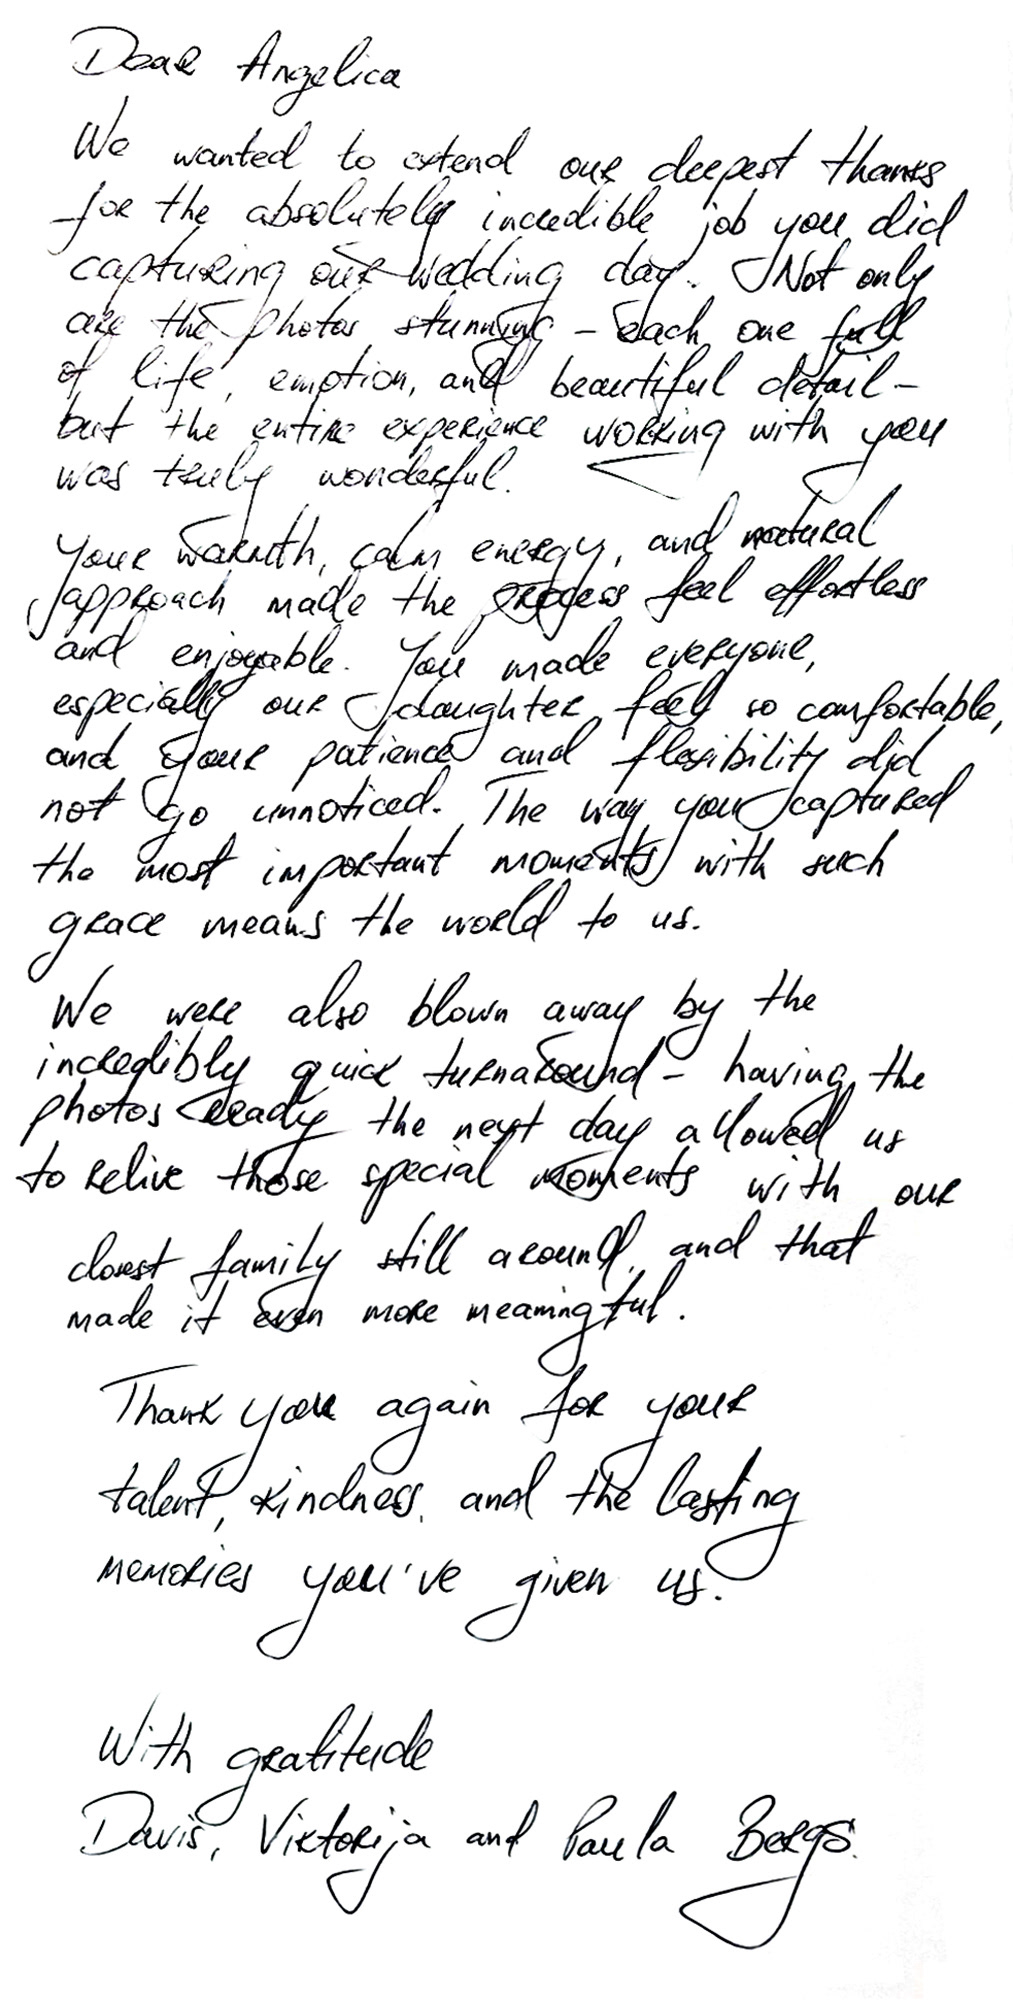 Dear Angelica
We wanted to extend our deepest thanks
for the absolutely incredible job you did
capturing our wedding day. Not only
are the photos stunning - each one full
of life, emotion, and beautiful detail -
but the entire experience working with you
was truly wonderful.
Your warmth, calm energy, and natural
approach made the process feel effortless
and enjoyable. You made everyone,
especially our daughter feel so comfortable,
and your patience and flexibility did
not go unnoticed. The way you captured
the most important moments with such
grace means the world to us.
We were also blown away by the
incredibly quick turnaround - having the
photos ready the next day allowed us
to relive those special moments with our
closest family still around, and that
made it even more meaningful.
Thank you again for your
talent, kindness, and the lasting
memories you've given us.
With gratitude
Davis, Viktorija and Paula Bergs.